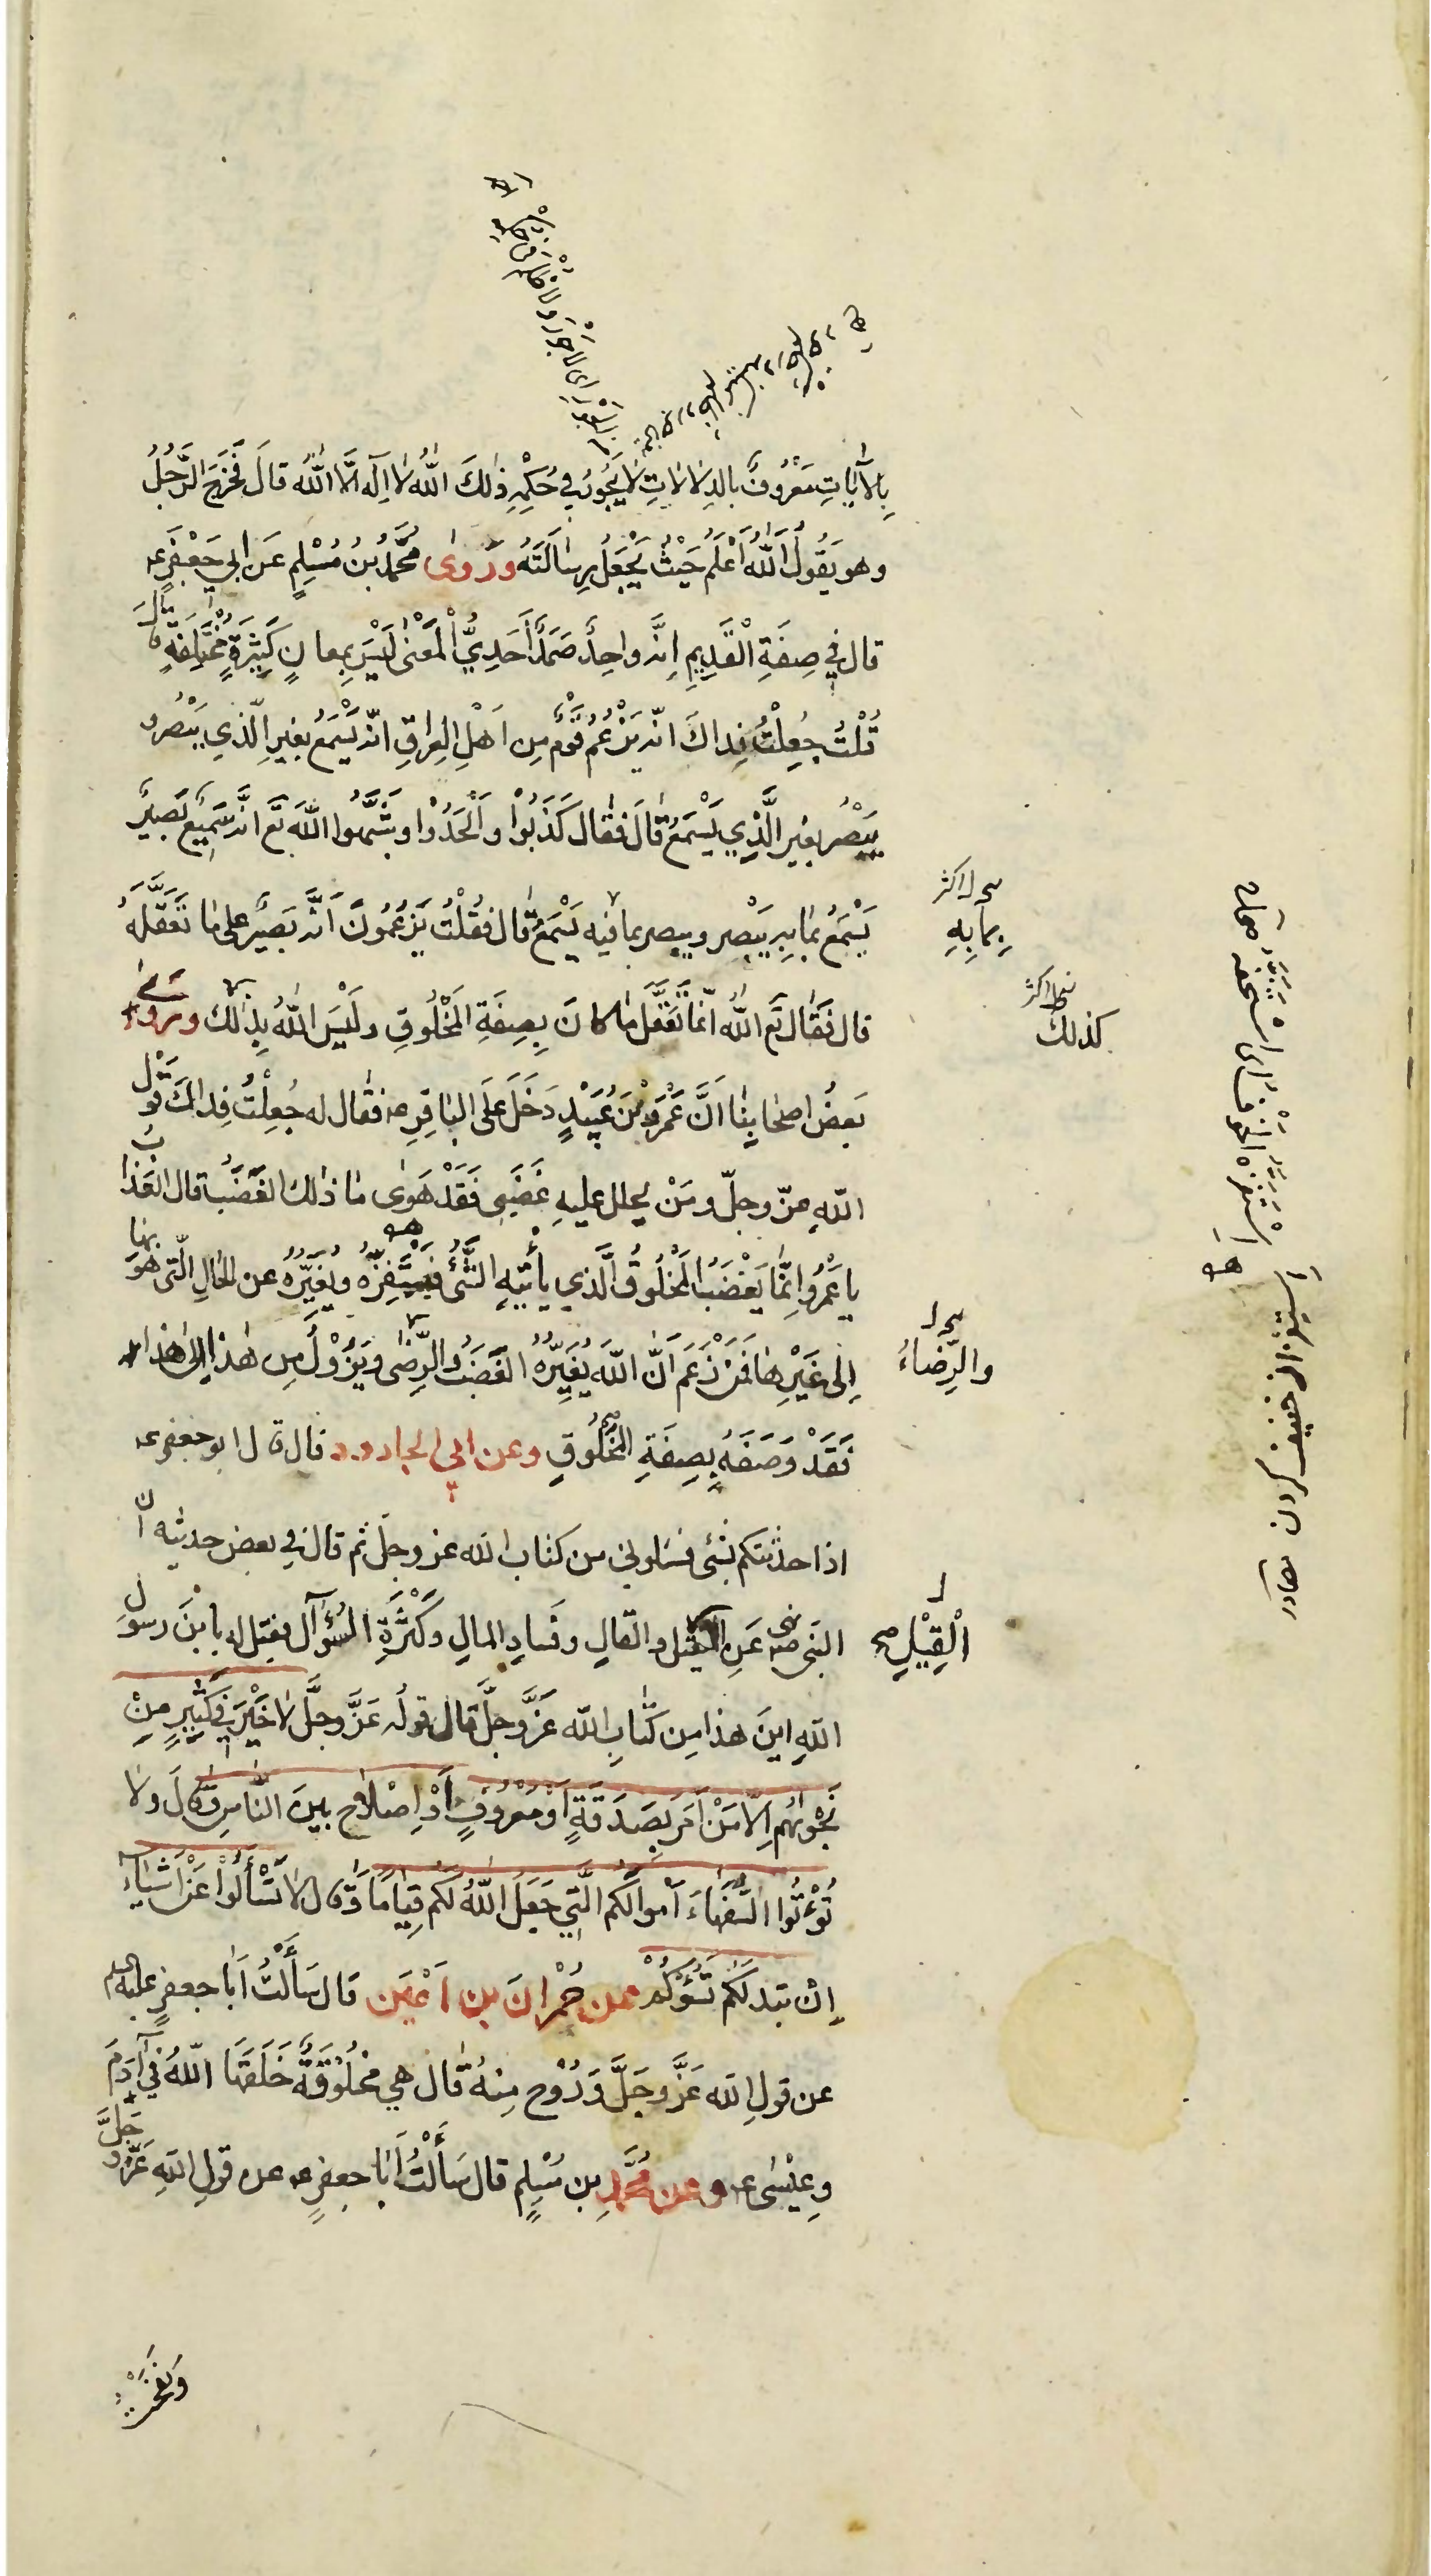 بِالْآيَاتِ مَعْرُوفٌ بالدلالاتِ لا يَجُورُ في حُكْمِهِ ذٰلكَ اللّٰهُ لا اِلٰهَ اِلَّا اللّٰهُ قالَ فَخَرَجَ الرَّجُلُ
وهو يَقُولُ اَللّٰهُ اَعْلَمُ حَيْثُ يَجْعَلُ رِسٰالَتَهُ وَرَوٰى مُحَمَّدُ بنُ مُسْلِمٍ عَن ابي جَعْفَرٍ ع
قال في صِفَةِ الْقَدِيمِ اِنَّه واحِدٌ صَمَدٌ اَحَدِيُّ الْمَعْنٰى لَيْسَ بِمعانٍ كَثِيرَةٍ مُخْتَلِفَةٍ قالَ
قُلْتُ جُعِلْتُ فِداكَ انّه يَزْعُمُ قَوْمٌ مِن اَهْلِ العِراقِ انّه يَسْمَعُ بغيرِ الّذي يَبْصُر و
يَبْصُر بغير الَّذِي يَسْمَعُ قٰالَ فقٰال كَذَبُوْا وَاَلْحَدُوْا وشَبَّهُوا اللّٰهَ تَعَ انَّه سَمِيعٌ بَصِيرٌ
يَسْمَعُ بمٰا به يَبْصِر ويبصر بما فيه يَسْمَعُ قٰال فقُلْتُ يَزْعُمُونَ اَنَّه بَصِيرٌ على مٰا تَعَقَّلَهُ
بِمابِهِ
قال فَقٰال تَعَ اللّٰهُ انّما تَعَقَّلَ مٰا كانَ بِصِفَةِ المَخْلُوقِ ولَيْسَ اللّٰهُ بِذٰلك وروىٰ
كذلكَ
بَعضُ اصحٰابِنٰا اَنَّ عَمْرَو بْنَ عُبَيْدٍ دَخَلَ عَلَى البٰاقِرِ ع فقٰال له جُعِلْتُ فِداكَ قَوْل
اللّٰهِ عزّ وجلّ ومَنْ يحلل عليهِ غَضَبِي فَقَدْ هَوٰى مٰا ذٰلك الغَضَبُ قال العَذابُ
يا عَمْرُو اِنَّمٰا يَغْضَبُ المَخْلُوقُ الَّذي يأتيهِ الشَّيْءُ فيَسْتَفِزّه ويُغَيِّرُهُ عن الحٰالِ الّتي هُوَ بها
اِلى غَيْرِهٰا فَمَنْ زَعَمَ اَنَّ اللّٰهَ يُغَيِّرُهُ الغَضَبُ والرِّضٰى ويَزُوْلُ مِن هٰذا اِلى هٰذا
والرِّضاءُ
فَقَدْ وَصَفَهُ بِصِفَةِ المَخْلُوقِ وعن ابي الجارود قال قال ابو جعفر ع
اذا حدثتكم بشيء فسلوني من كتاب اللّٰه عز وجل ثم قال في بعض حديثه انّ
النبي ص نهى عَنِ القيل والقالِ وفَسٰادِ المالِ وكَثْرَةِ السُّؤآل فقيل له يا بْنَ رسول
الْقِيْلِ
اللّٰهِ اينَ هذا مِن كتٰابِ اللّٰه عَزَّ وجلَّ قال قولُه عَزَّ وجلَّ لا خَيْرَ في كَثيرٍ مِنْ
نَجْوٰىهُم اِلّا مَنْ اَمَرَ بِصَدَقَةٍ اَوْ مَعْرُوفٍ اَوْ اِصْلٰاحٍ بينَ النّٰاسِ وَقالَ ولا
تُؤْتُوا السُّفَهٰاءَ اَموالَكُم الَّتِي جَعَلَ اللّٰهُ لَكُم قِيٰامًا وَقال لا تَسْأَلُوا عَنْ اَشيٰاءَ
اِنْ تبدلَكم تَسُؤْكُمْ عن حُمْرانَ بن اَعْيَن قال سَأَلْتُ اَبا جعفرٍ عليه السلم
عن قولِ اللّٰه عَزَّ وجَلَّ وَرُوْح مِنهُ قال هي مَخْلُوْقَةٌ خَلَقَهٰا اللّٰهُ في آدَمَ
وعِيْسٰى ع وعن مُحَمَّدِ بن مُسْلِمٍ قال سَأَلْتُ اَبٰا جعفرٍ ع عن قولِ اللّٰهِ عَزَّ وجَلَّ
وَنَفَخْتُ